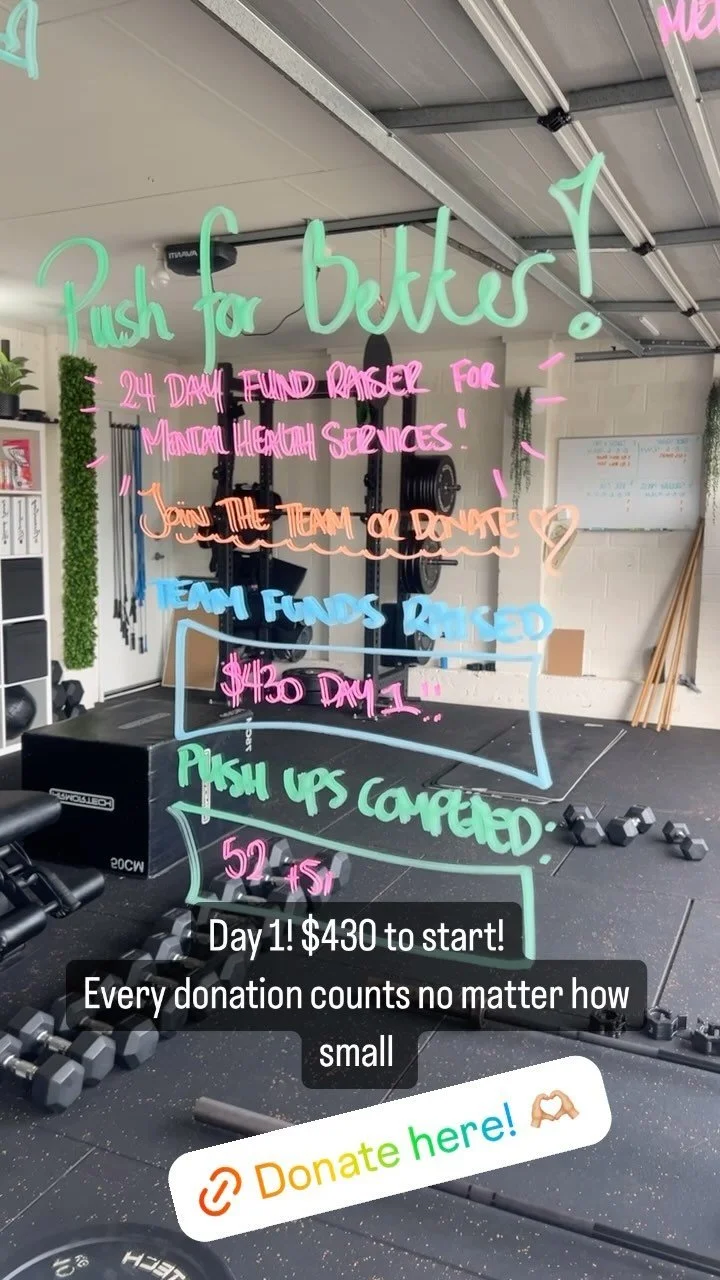 Push for Better!
24 DAY FUND RAISER FOR
MENTAL HEALTH SERVICES!
JOIN THE TEAM OR DONATE
TEAM FUNDS RAISED
$430 DAY 1!!
PUSH UPS COMPLETED:
52 +51
Day 1! $430 to start!
Every donation counts no matter how
small
Donate here!
50CM